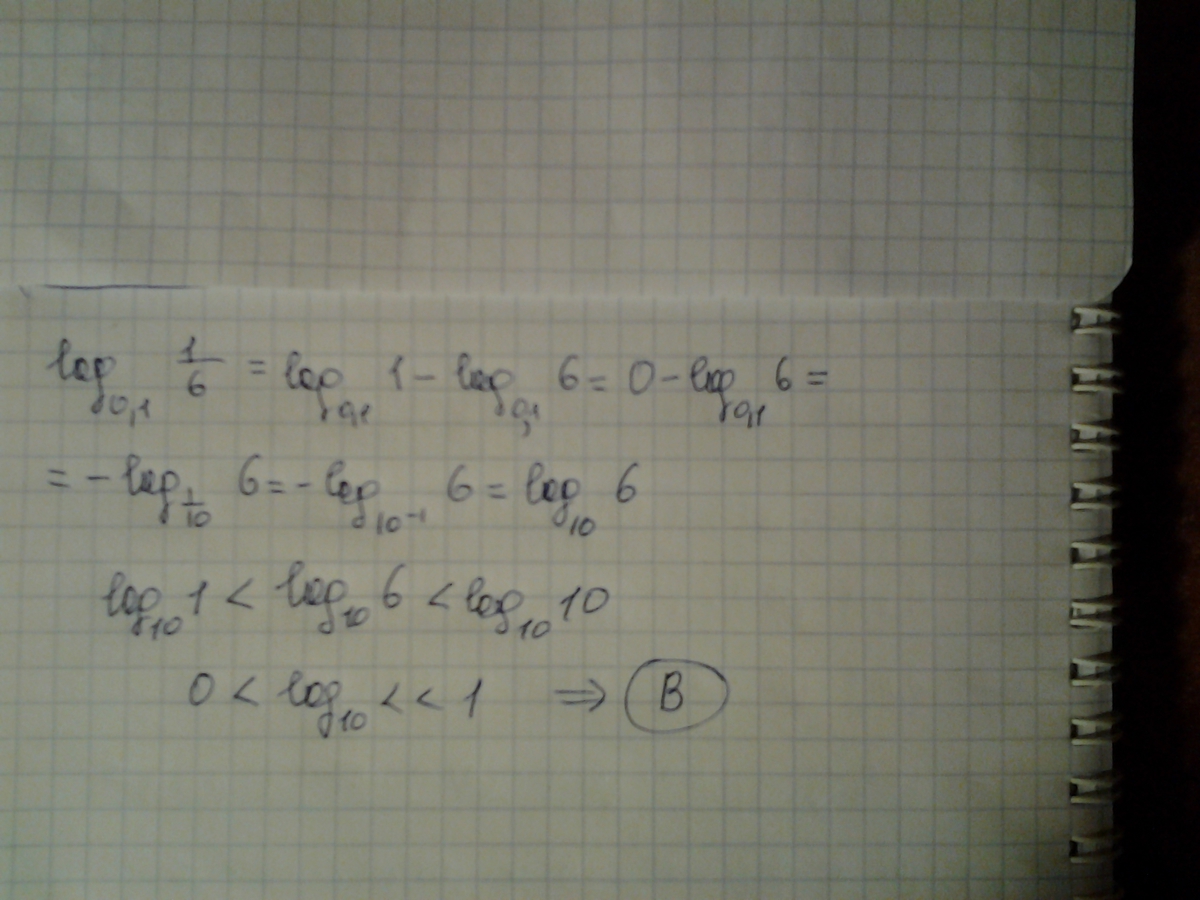 log₀,₁ 1/6 = log₀,₁ 1 - log₀,₁ 6 = 0 - log₀,₁ 6 =
= - log_1/10 6 = - log₁₀⁻¹ 6 = log₁₀ 6
log₁₀ 1 < log₁₀ 6 < log₁₀ 10
0 < log₁₀ < < 1 ⇒ B